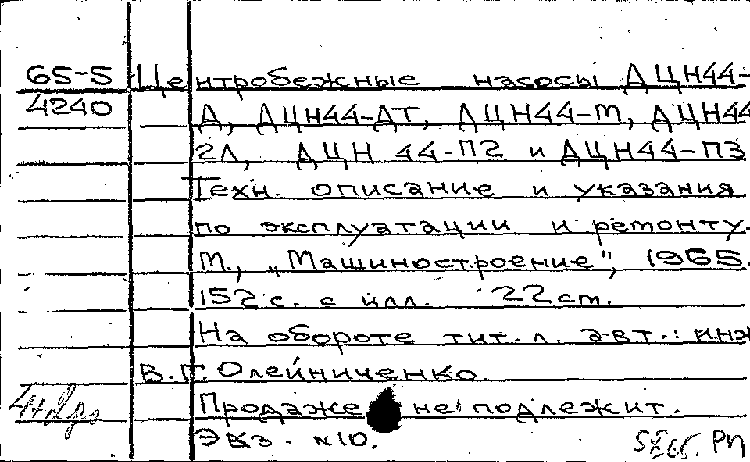 65-5 Центробежные насосы ДЦН44-
4240 Д, ДЦН44-ДТ, ДЦН44-М, ДЦН44
2Л, ДЦН 44-П2 и ДЦН44-ПЗ
Техн. описание и указания
по эксплуатации и ремонту.
М., „Машиностроение", 1965.
152 с. с илл. 22 см.
На обороте тит. л. авт.: инж
В.Г. Олейниченко
Продаже не подлежит.
Экз. N10.